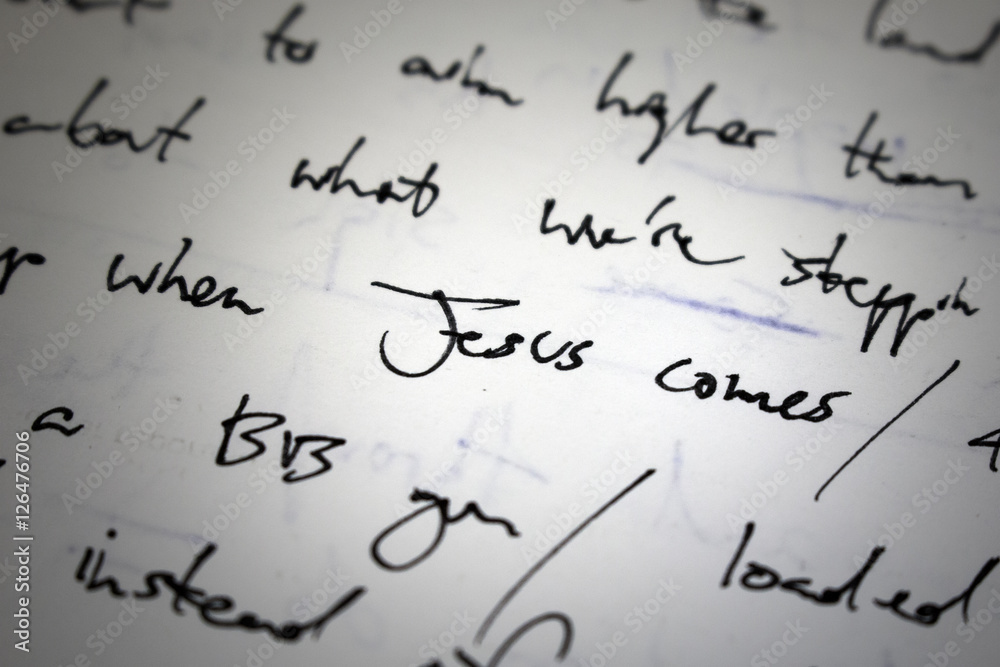 to aim higher than
about what we're steppin
when Jesus comes /
a BB gun / loaded
instead
Adobe Stock | #126476706
Adobe Stock